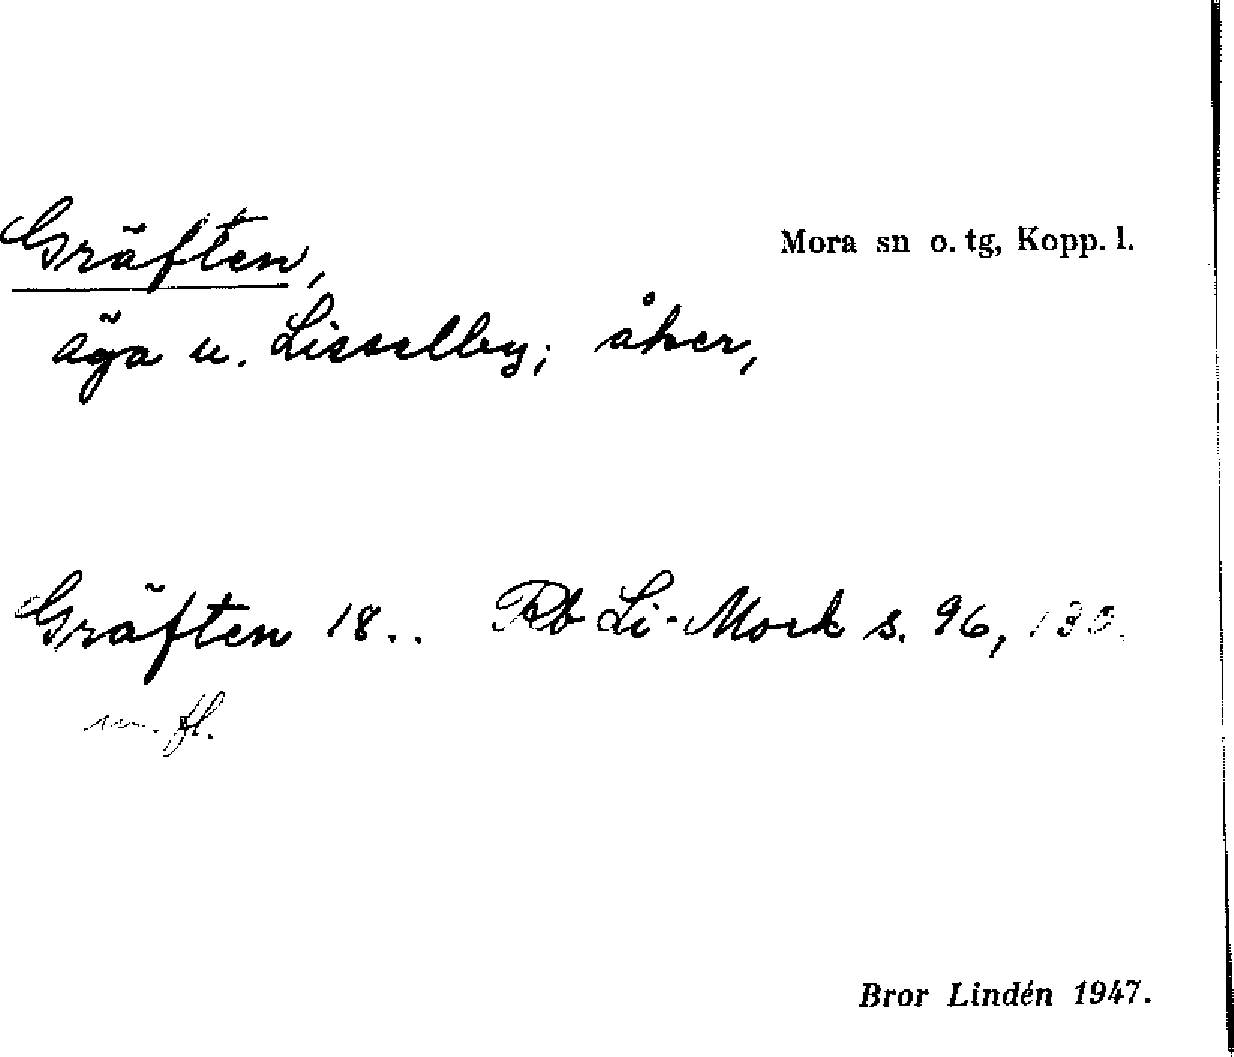 Gräften,
Mora sn o. tg, Kopp. l.
äga u. Lisselby; åker,
Gräften 18.. Rb Li-Mork s. 96, 130.
m. fl.
Bror Lindén 1947.